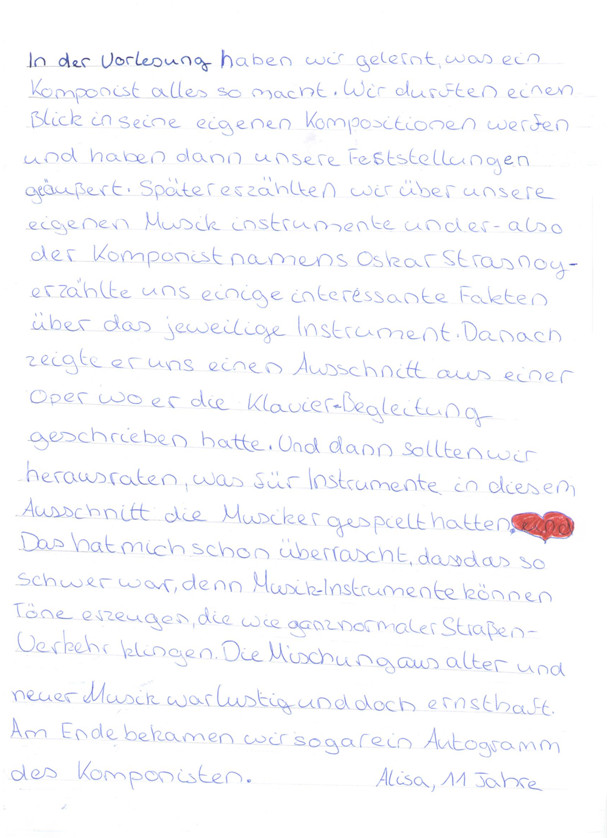 In der Vorlesung haben wir gelernt, was ein
Komponist alles so macht. Wir durften einen
Blick in seine eigenen Kompositionen werfen
und haben dann unsere Feststellungen
geäußert. Später erzählten wir über unsere
eigenen Musik instrumente und er - also
der Komponist namens Oskar Strasnoy -
erzählte uns einige interessante Fakten
über das jeweilige Instrument. Danach
zeigte er uns einen Ausschnitt aus einer
Oper wo er die Klavier-Begleitung
geschrieben hatte. Und dann sollten wir
herausraten, was für Instrumente in diesem
Ausschnitt die Musiker gespielt hatten.
Das hat mich schon überrascht, dass das so
schwer war, denn Musik-Instrumente können
Töne erzeugen, die wie ganz normaler Straßen-
Verkehr klingen. Die Mischung aus alter und
neuer Musik war lustig und doch ernsthaft.
Am Ende bekamen wir sogar ein Autogramm
des Komponisten. Alisa, 11 Jahre